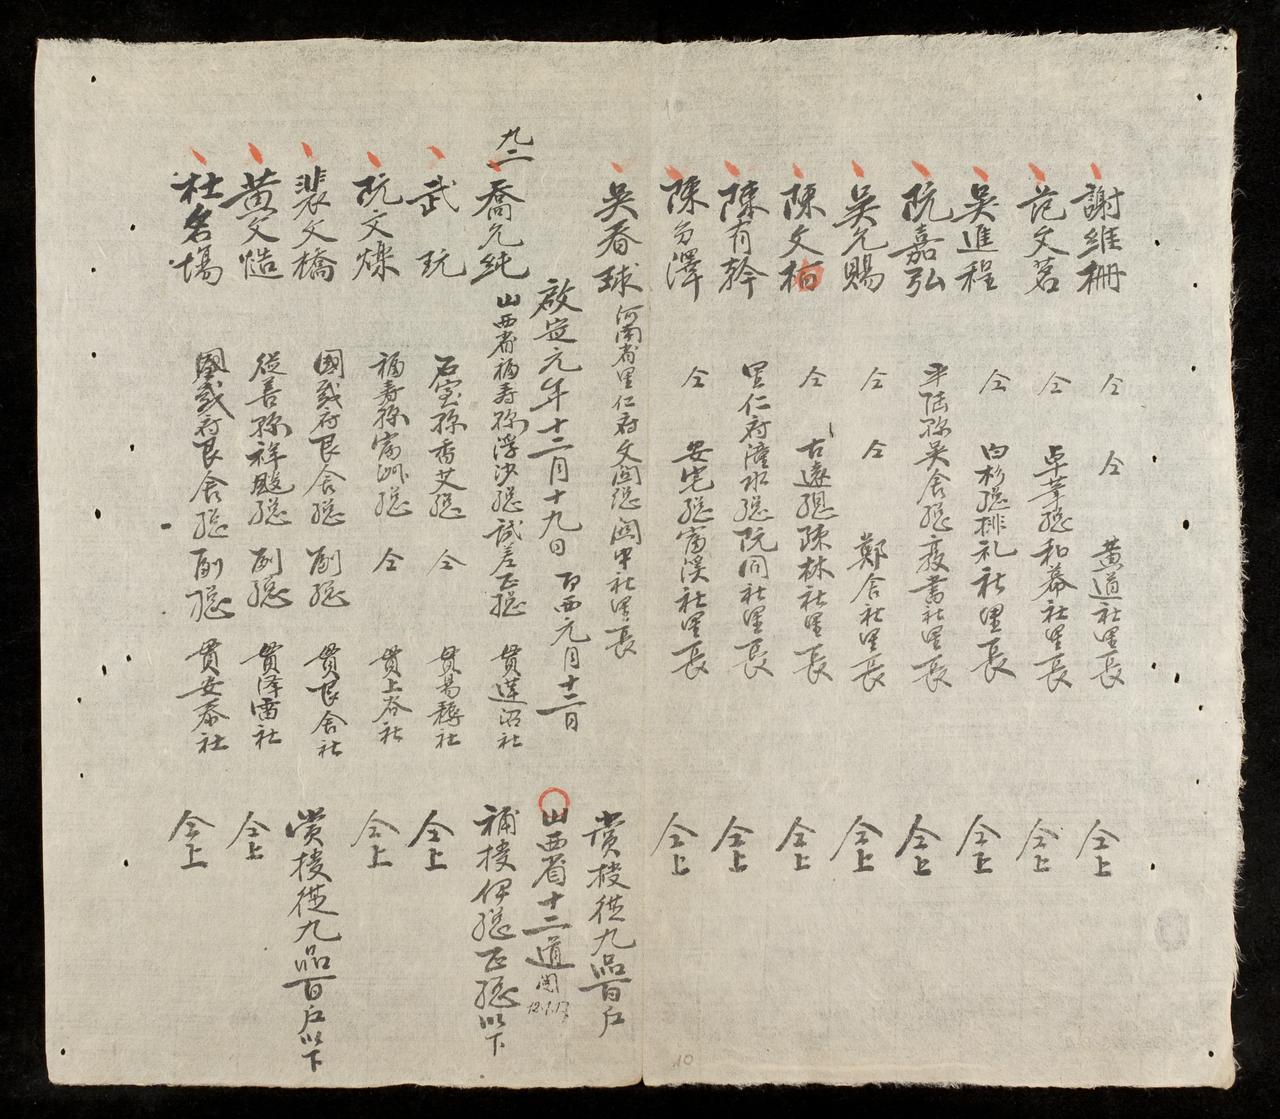 謝維柵 仝 仝 黄道社里長 仝上
范文茗 仝 卓筆總和幕社里長 仝上
吳進程 仝 内杉總排礼社里長 仝上
阮嘉弘 平陆縣吳舍總 書社里長 仝上
吳允賜 仝 仝 鄭舍社里長 仝上
陳文栢 仝 古遶總疎林社里長 仝上
陳有幹 里仁府潼水總阮同社里長 仝上
陳 澤 仝 安宅總富溪社里長 仝上
吳春球 河南省里仁府文圓總 中社里長 賞授從九品百户
啟定元年十二月十九日 百西元月十二日 山西省十二道
九二 喬允純 山西省福寿縣浮沙總試差正總 貫蓮沼社 補授伊總正總以下
武玩 石室縣香艾總 仝 貫易耨社 仝上
阮文爍 福寿縣富洲總 仝 貫上谷社 仝上
裴文橋 國威府艮舍總副總 貫艮舍社 賞授從九品百户以下
黄文慥 從善縣祥 總副總 貫泽雷社 仝上
杜名塲 國威府艮舍總副總 貫安泰社 仝上
10